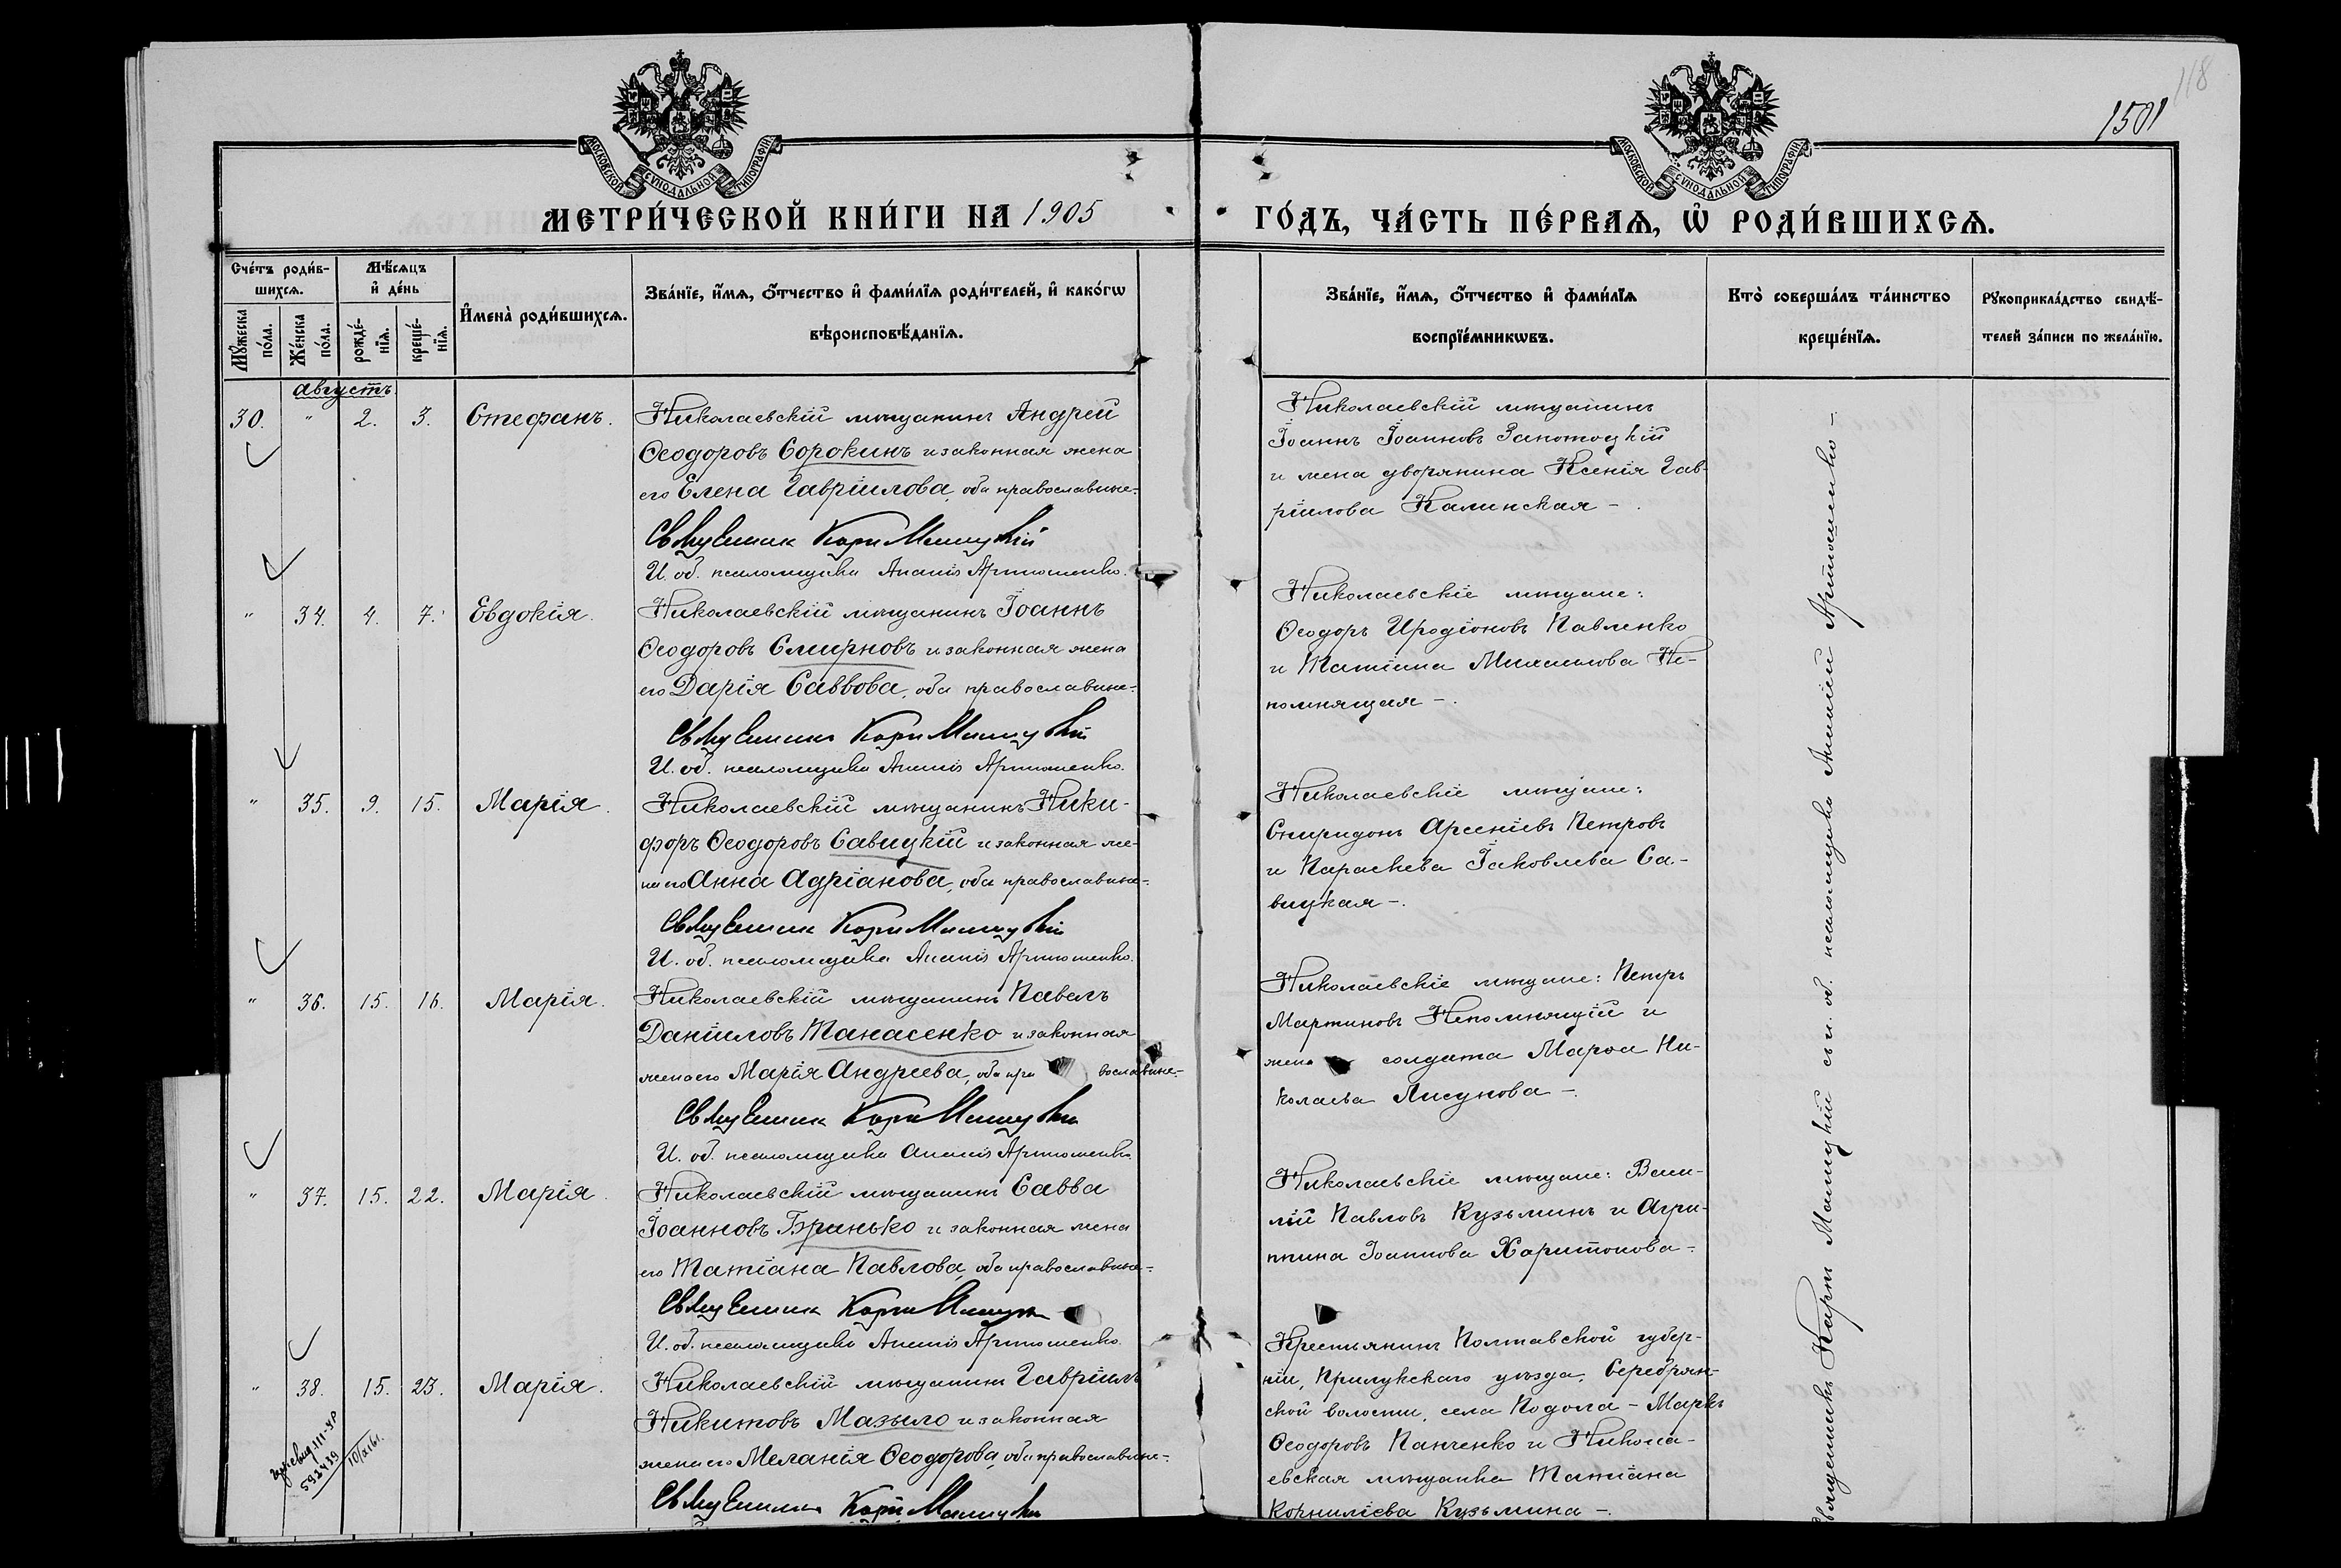 118
1501
МОСКОВСКОЙ СѴНОДАЛЬНОЙ ТИПОГРАФІИ
МОСКОВСКОЙ СѴНОДАЛЬНОЙ ТИПОГРАФІИ
МЕТРИ́ЧЕСКОЙ КНИ́ГИ НА 1905
ГО́ДЪ, ЧА́СТЬ ПЕ́РВАѦ, Ѡ҆ РОДИ́ВШИХСѦ.
Сче́тъ роди́в-
шихсѧ.
Мꙋ́жеска по́ла.
Же́нска по́ла.
Мѣ́сѧцъ
и҆ де́нь
рожде́-
нїѧ.
креще́-
нїѧ.
И҆мена̀ роди́вшихсѧ.
Зва́нїе, и҆́мѧ, ѻ҆́тчество и҆ фами́лїѧ роди́телей, и҆ како́гѡ
вѣроисповѣ́данїѧ.
Зва́нїе, и҆́мѧ, ѻ҆́тчество и҆ фами́лїѧ
воспрїе́мникѡвъ.
Кто̀ соверша́лъ та́инство
креще́нїѧ.
Рꙋкоприкла́дство свидѣ́-
телей за́писи по жела́нїю.
Августъ.
30. " 2. 3. Стефанъ.
Николаевскій мѣщанинъ Андрей
Ѳеодоровъ Сорокинъ и законная жена
его Елена Гавріилова, оба православные.
Священник Карп Машицкій
И. об. псаломщика Ананій Артюшенко.
Николаевскій мѣщанинъ
Іоаннъ Іоанновъ Запотоцкій
и жена дворянина Ксенія Гав-
ріилова Калинская -.
" 34. 4. 7. Евдокія.
Николаевскій мѣщанинъ Іоаннъ
Ѳеодоровъ Смирновъ и законная жена
его Дарія Саввова, оба православные.
Священник Карп Машицкій
И. об. псаломщика Ананій Артюшенко.
Николаевскіе мѣщане:
Ѳеодоръ Иродіоновъ Павленко
и Татіана Михаилова Не-
помнящая -.
" 35. 9. 15. Марія.
Николаевскій мѣщанинъ Ники-
форъ Ѳеодоровъ Савицкій и законная же-
на его Анна Адріанова, оба православные.
Священник Карп Машицкій
И. об. псаломщика Ананій Артюшенко.
Николаевскіе мѣщане:
Спиридонъ Арсеніевъ Петровъ
и Параскева Іаковлева Са-
вицкая -.
" 36. 15. 16. Марія.
Николаевскій мѣщанинъ Павелъ
Даніиловъ Танасенко и законная
жена его Марія Андреева, оба православные.
Священник Карп Машицкій
И. об. псаломщика Ананій Артюшенко.
Николаевскіе мѣщане: Петръ
Мартиновъ Непомнящій и
жена солдата Марѳа Ни-
колаева Лисунова -.
" 37. 15. 22. Марія.
Николаевскій мѣщанинъ Савва
Іоанновъ Бринько и законная жена
его Татіана Павлова, оба православные.
Священник Карп Машицкій
И. об. псаломщика Ананій Артюшенко.
Николаевскіе мѣщане: Васи-
лій Павловъ Кузьминъ и Агри-
ппина Іоаннова Харитонова -.
" 38. 15. 23. Марія.
Николаевскій мѣщанинъ Гавріилъ
Никитовъ Мазыло и законная
жена его Меланія Ѳеодорова, оба православные.
Священник Карп Машицкій
Крестьянинъ Полтавской губер-
ніи, Прилукскаго уѣзда, Серебрян-
ской волости, села Подола - Маркъ
Ѳеодоровъ Панченко и Никола-
евская мѣщанка Татіана
Корниліева Кузьмина -.
Священникъ Карпъ Машицкій съ и. об. псаломщика Ананіемъ Артюшенко -
592439